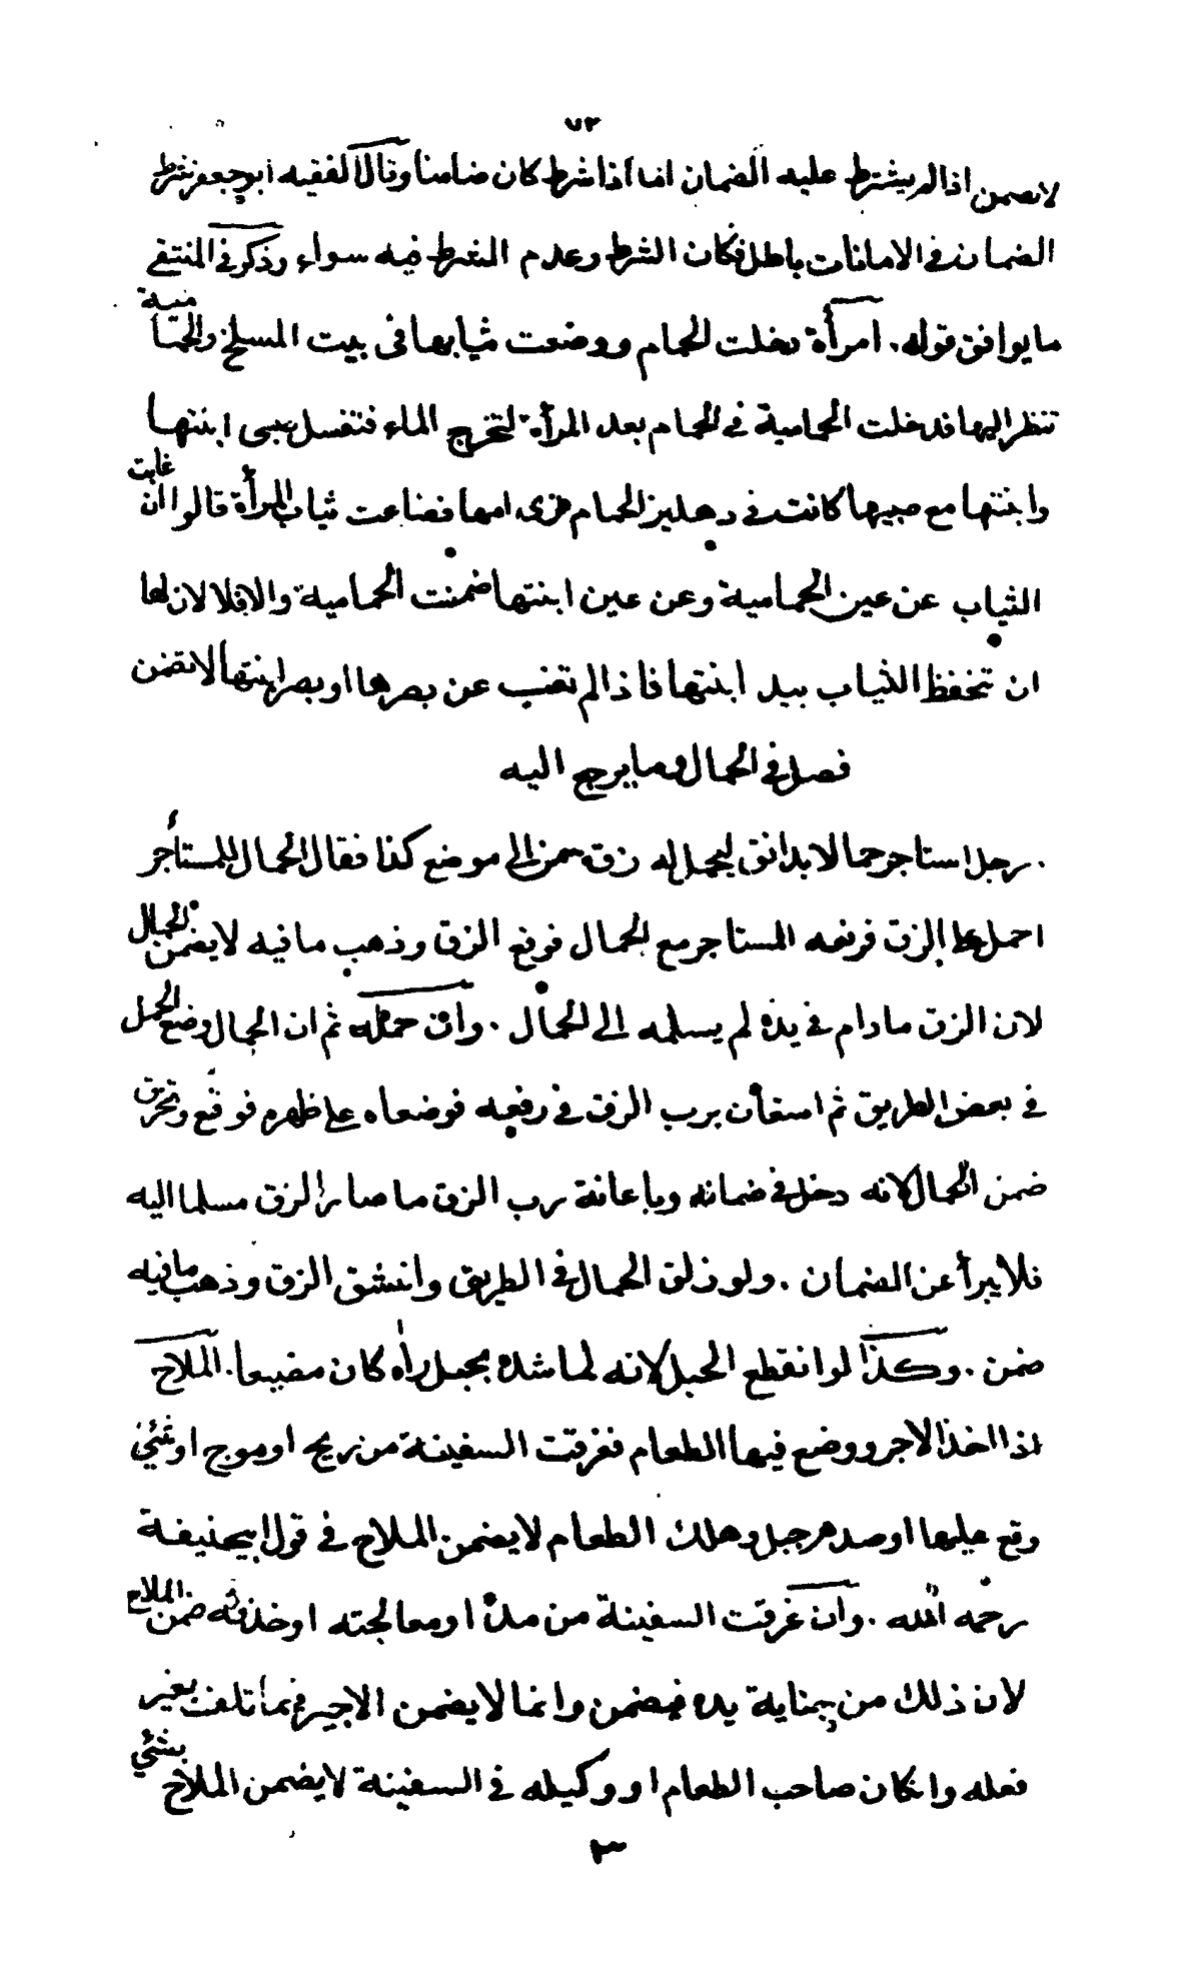 ٧٣
لا يضمن اذا لم يشترط عليه الضمان اما اذا شرط كان ضامنا وقال الفقيه ابو جعفر شرط
الضمان في الامانات باطل فكان الشرط وعدم الشرط فيه سواء وذكر في المنتقي
ما يوافق قوله . امرأة دخلت الحمام ووضعت ثيابها في بيت المسلخ والحمامية
تنظر اليها فدخلت الحمامية في الحمام بعد المرأة لتخرج الماء فتغسل صبى ابنتها
وابنتها مع صبيها كانت في دهليز الحمام ترى امها فضاعت ثياب المرأة قالوا ان غابت
الثياب عن عين الحمامية وعن عين ابنتها ضمنت الحمامية والا فلا لان لها
ان تحفظ الثياب بيد ابنتها فاذا لم تغب عن بصرها او بصر ابنتها لا تضمن
فصل في الحمال وما يرجع اليه
. رجل استاجر حمالا بدانق ليحمل له زق سمن الى موضع كذا فقال الحمال للمستأجر
احمل الزق فرفعه المستاجر مع الحمال فوقع الزق وذهب ما فيه لا يضمن الحمال
لان الزق ما دام في يده لم يسلمه الى الحمال . وان حمله ثم ان الحمال وضع الحمل
في بعض الطريق ثم استعان برب الزق في رفعه فوضعاه على ظهره فوقع وتخرق
ضمن الحمال لانه دخل في ضمانه وباعانة رب الزق ما صار الزق مسلما اليه
فلا يبرأ عن الضمان . ولو زلق الحمال في الطريق وانشق الزق وذهب ما فيه
ضمن . وكذا لو انقطع الحبل لانه لما شده بحبل راه كان مضيعا . الملاح
اذا اخذ الاجر ووضع فيها الطعام فغرقت السفينة من ريح او موج او شئي
وقع عليها او صدم جبل وهلك الطعام لا يضمن الملاح في قول ابيحنيفة
رحمه الله . وان غرقت السفينة من مده او معالجته او خذفه ضمن الملاح
لان ذلك من جناية يده فيضمن وانما لا يضمن الاجير فيما تلف بغير
فعله وانكان صاحب الطعام او وكيله في السفينة لا يضمن الملاح بشئي